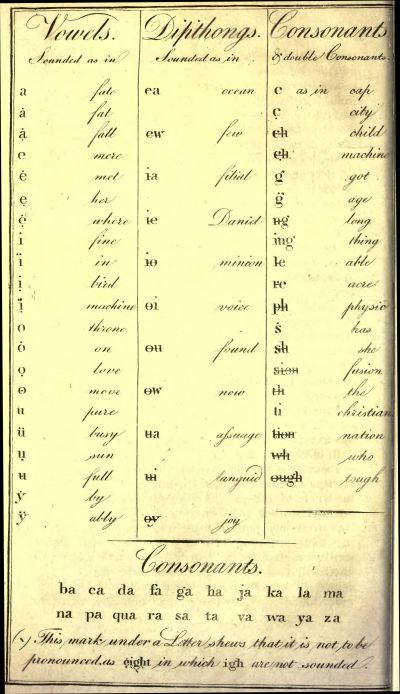 Vowels.
Sounded as in
a fate
ȧ fat
ạ̇ fall
e mere
ė met
ẹ her
ẹ̇ where
i fine
ï in
ị bird
ị̈ machine
o throne
ȯ on
ọ love
ɵ move
u pure
ü busy
ụ sun
ʉ full
ẏ by
ÿ abby
Dipthongs.
Sounded as in
ea ocean
ew few
ia filial
ie Daniel
io minion
oi voice
ou found
ow now
ua aſsuage
ui languid
oy joy
Consonants
& double Consonants.
c as in cap
c̣ city
ch child
cḥ machine
g got
g̈ age
ng long
ing thing
le able
re acre
ph physic
ṡ has
sh she
sion fusion
th the
ti christian
tion nation
wh who
ough tough
Consonants.
ba ca da fa ga ha ja ka la ma
na pa qua ra sa ta va wa ya za
(ˎ) This mark under a Letter shews that it is not to be
pronounced, as eight in which igh are not sounded.